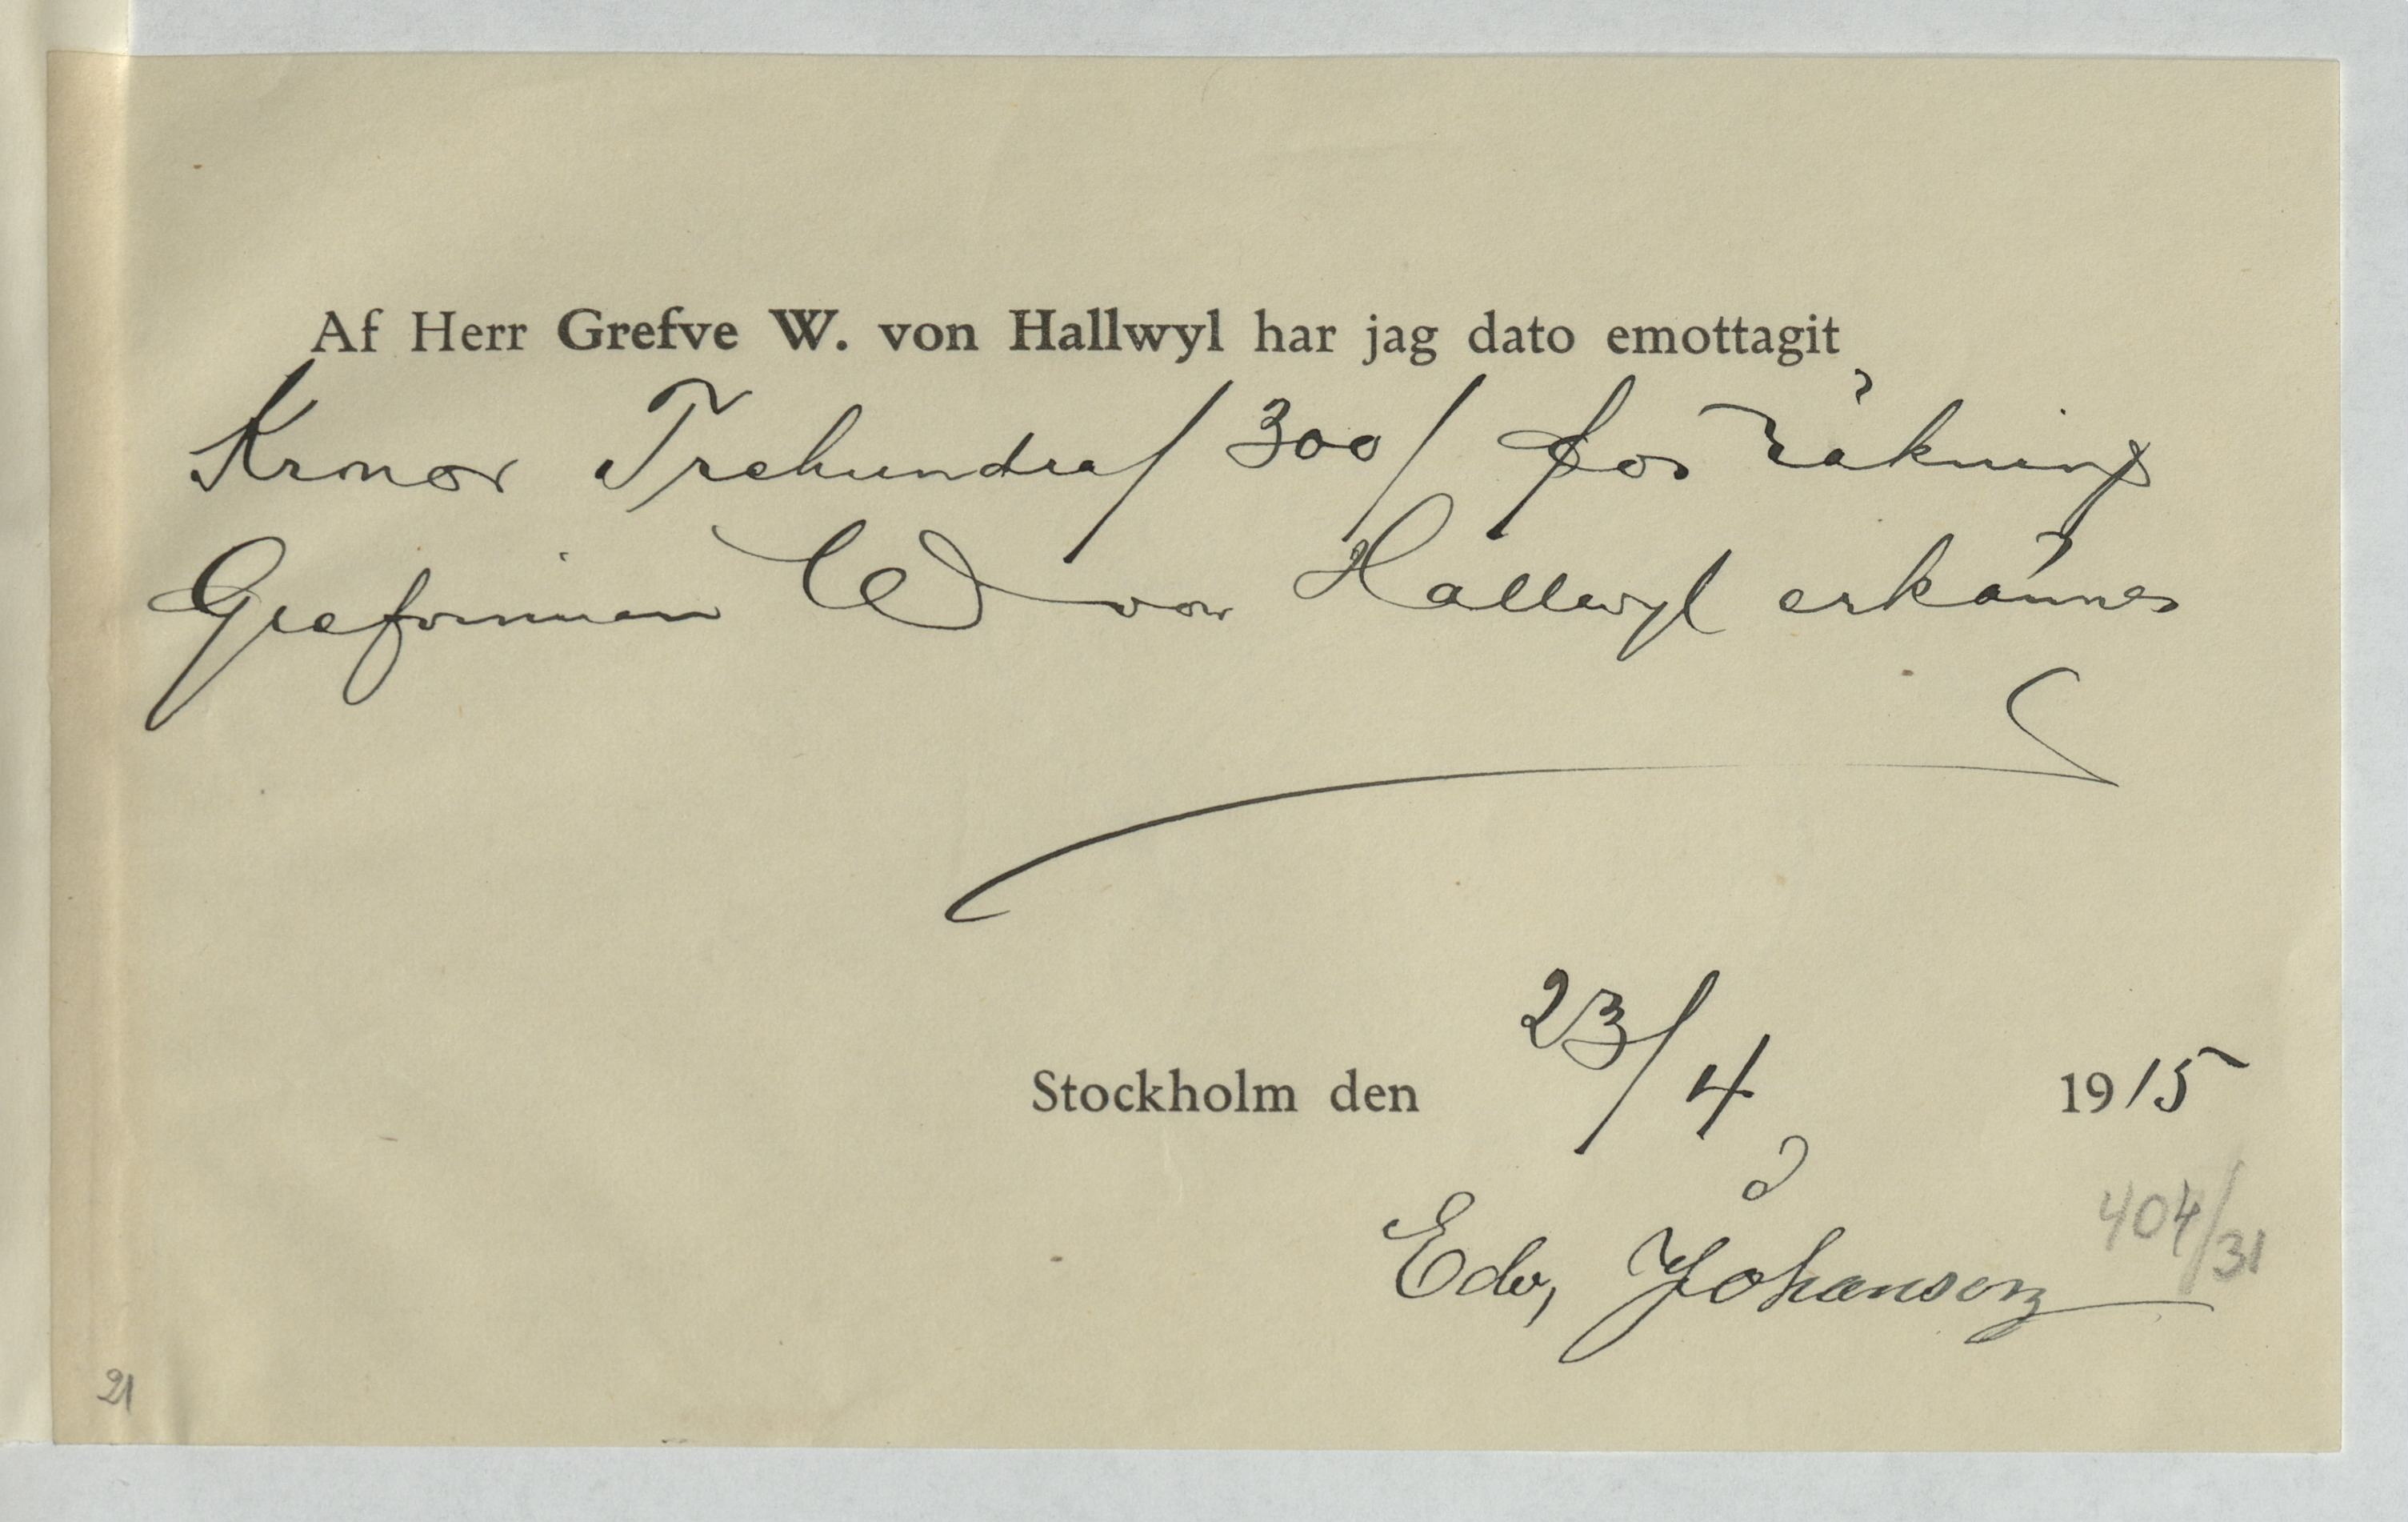 Af Herr Grefve W. von Hallwyl har jag dato emottagit
Kronor Trehundra/300/ för räkning
Grefvinnan W von Hallwyl erkännes
Stockholm den 23/4 1915
Edv, Johanson
404/31
21